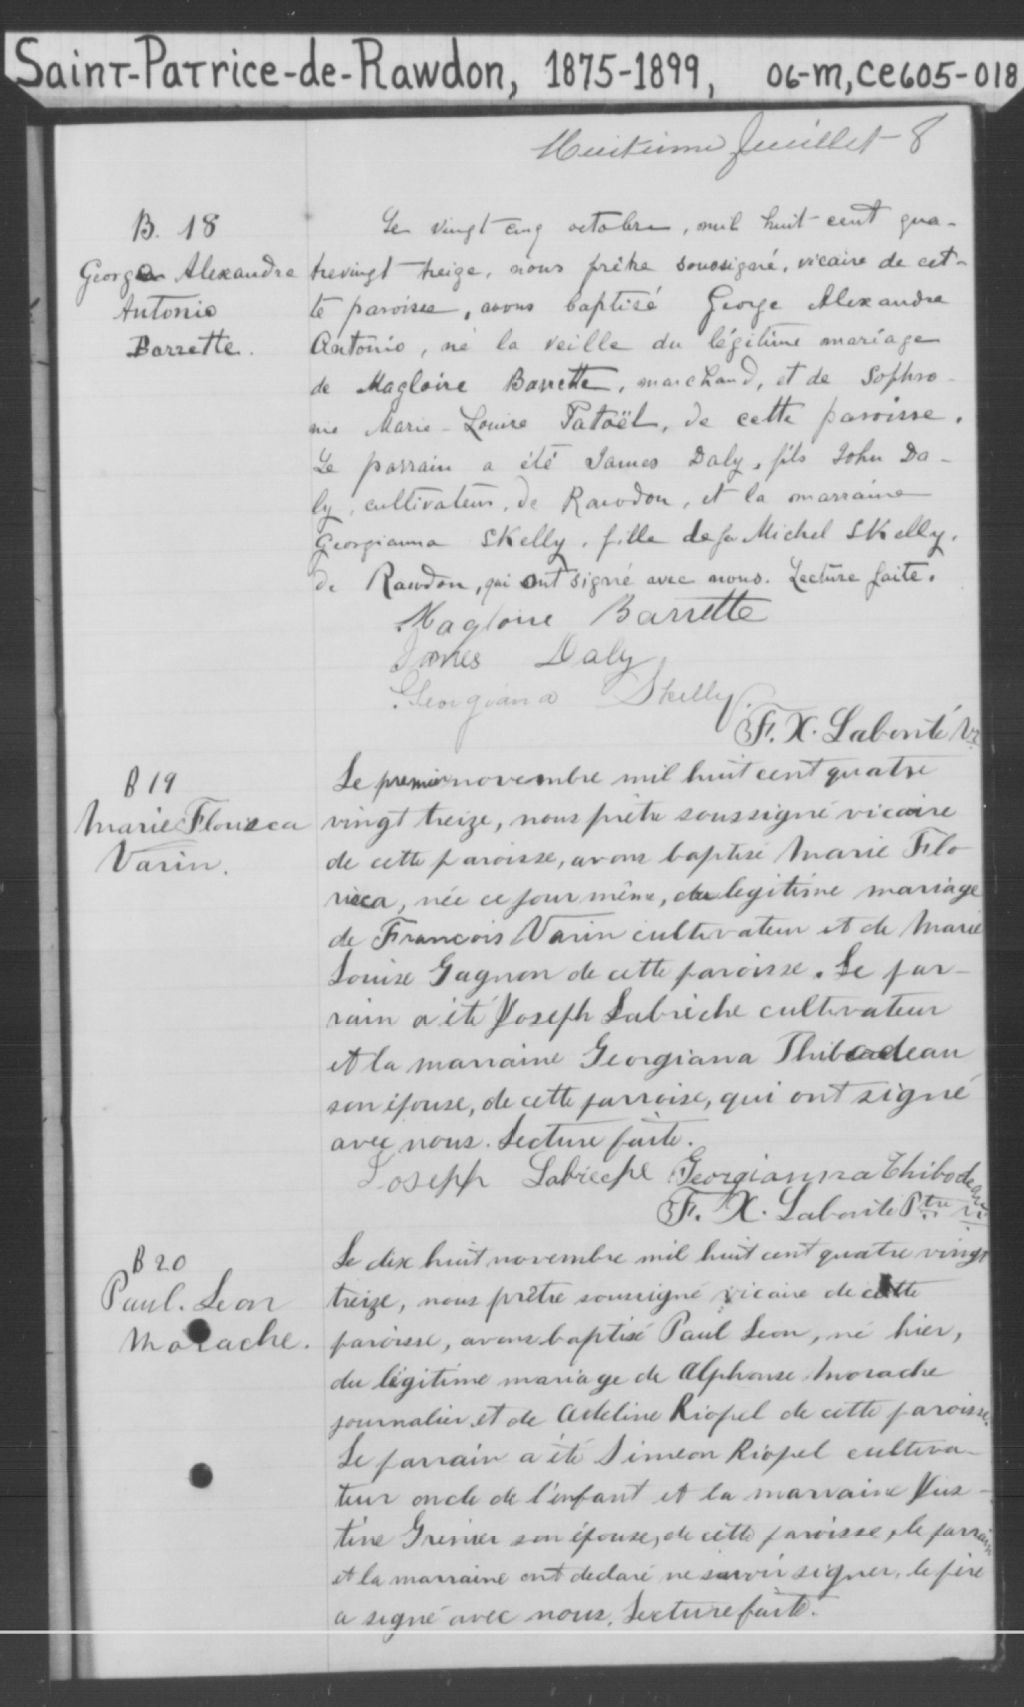 Saint-Patrice-de-Rawdon, 1875-1899, 06-m, CE605-018
Huitième feuillet 8
B. 18
George Alexandre
Antonio
Barrette.
Le vingt cinq octobre, mil huit cent qua-
trevingt treize, nous prêtre soussigné, vicaire de cet-
te paroisse, avons baptisé George Alexandre
Antonio, né la veille du légitime mariage
de Magloire Barrette, marchand, et de Sophro-
nie Marie-Louise Patoël, de cette paroisse.
Le parrain a été James Daly, fils John Da-
ly, cultivateur, de Rawdon, et la marraine
Georgianna Skelly, fille de feu Michel Skelly,
de Rawdon, qui ont signé avec nous. Lecture faite.
Magloire Barrette
James Daly
Georgiana Skelly
F. X. Labonté
B 19
Marie Florisca
Varin.
Le premier novembre mil huit cent quatre
vingt treize, nous prêtre soussigné vicaire
de cette paroisse, avons baptisé Marie Flo
risca, née ce jour même, du legitime mariage
de Francois Varin cultivateur et de Marie
Louise Gagnon de cette paroisse. Le par-
rain a été Joseph Labrèche cultivateur
et la marraine Georgiana Thibodeau
son épouse, de cette parroise, qui ont signé
avec nous. Lecture faite.
Joseph Labreche Georgianna Thibodeau
F. X. Labonté Ptre vi
B 20
Paul. Leon
Morache.
Le dix huit novembre mil huit cent quatre vingt
treize, nous prêtre soussigné vicaire de cette
paroisse, avons baptisé Paul Leon, né hier,
du légitime mariage de Alphonse Morache
journalier et de Adeline Riopel de cette paroisse.
Le parrain a été Simeon Riopel cultiva-
teur oncle de l'enfant et la marraine Jus-
tine Grenier son épouse, de cette paroisse, le parrain
et la marraine ont declaré ne savoir signer, le père
a signé avec nous. Lecture faite.